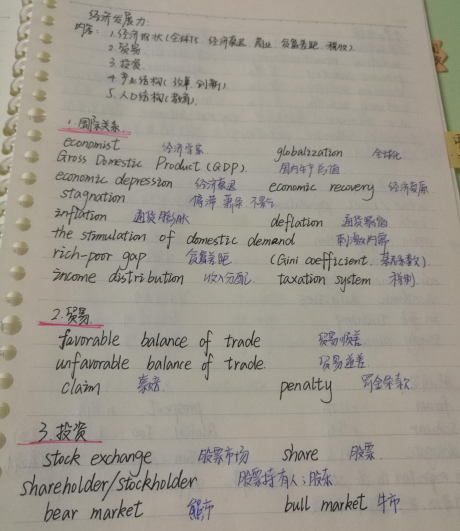 经济发展力:
内容: 1. 经济现状(全球化 经济衰退 商业 贫富差距 税收)
2. 贸易
3. 投资
4. 产业结构(改革,创新)
5. 人口结构(教育)
1. 国际关系
economist 经济学家 globalization 全球化
Gross Domestic Product (GDP). 国内生产总值
economic depression 经济衰退 economic recovery 经济复原
stagnation 停滞 萧条 不景气
inflation 通货膨胀 deflation 通货紧缩
the stimulation of domestic demand 刺激内需
rich-poor gap 贫富差距 (Gini coefficient. 基尼系数)
income distribution 收入分配 taxation system 税制
2. 贸易
favorable balance of trade 贸易顺差
unfavorable balance of trade. 贸易逆差
claim 索赔 penalty 罚金条款
3. 投资
stock exchange 股票市场 share 股票
shareholder/stockholder 股票持有人;股东
bear market 熊市 bull market 牛市